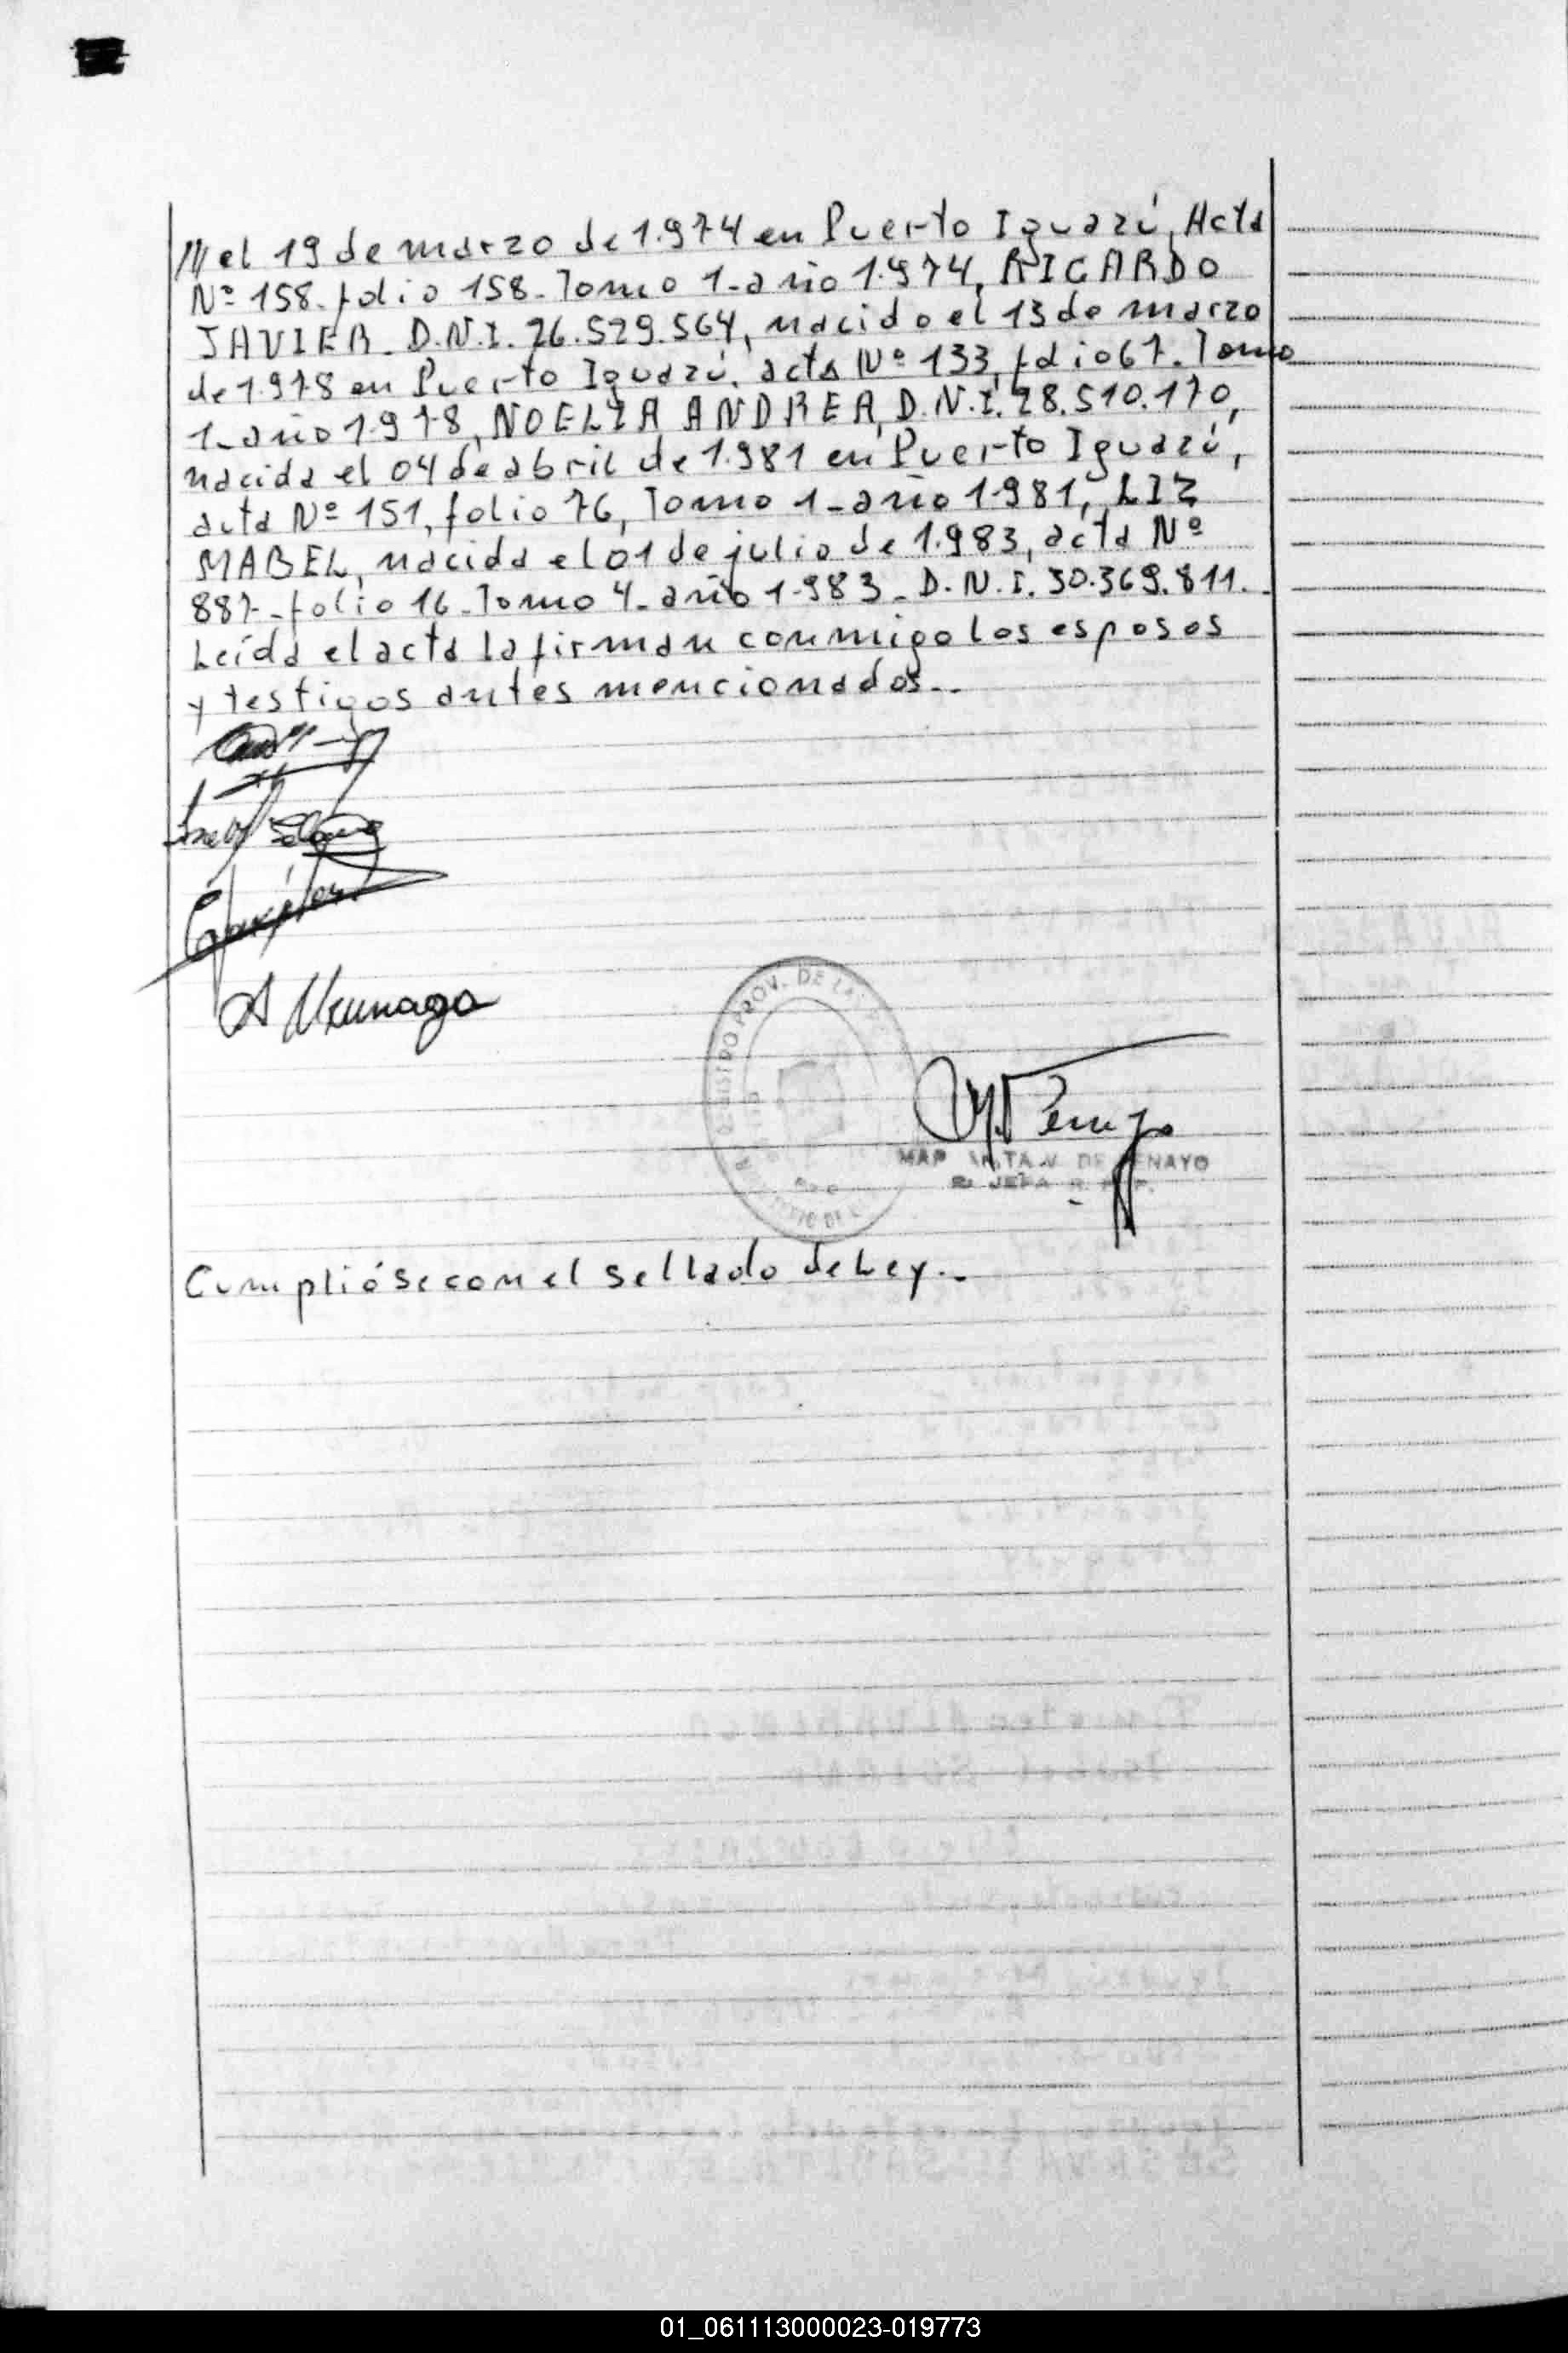 /// el 19 de marzo de 1.974 en Puerto Iguazú, Acta
Nº 158. folio 158. Tomo 1- año 1.974, RICARDO
JAVIER. D.N.I. 26.529.564, nacido el 13 de marzo
de 1.978 en Puerto Iguazú, acta Nº 133, folio 67. Tomo
1- año 1.978, NOELIA ANDREA, D.N.I. 28.510.170,
nacida el 04 de abril de 1.981 en Puerto Iguazú,
acta Nº 151, folio 76, Tomo 1- año 1.981, LIZ
MABEL, nacida el 01 de julio de 1.983, acta Nº
887- folio 16- Tomo 4- año 1.983- D.N.I. 30.369.811.-
Leída el acta la firman conmigo los esposos
y testigos antes mencionados.-
PROV. DE
DE PENAYO
JEFA
Cumplióse con el sellado de Ley.-
01_061113000023-019773